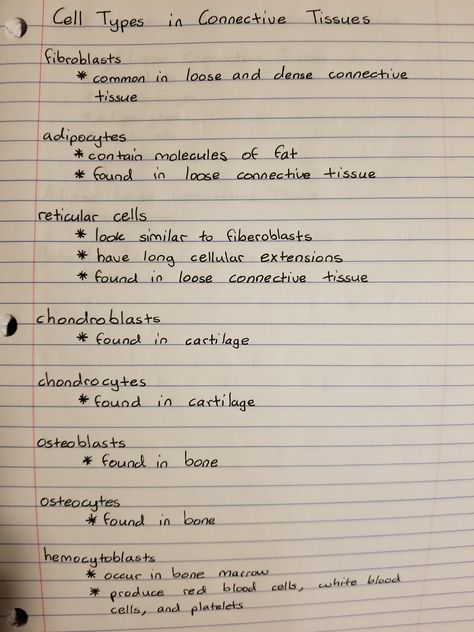 Cell Types in Connective Tissues
fibroblasts
* common in loose and dense connective
tissue
adipocytes
* contain molecules of fat
* found in loose connective tissue
reticular cells
* look similar to fiberoblasts
* have long cellular extensions
* found in loose connective tissue
chondroblasts
* found in cartilage
chondrocytes
* found in cartilage
osteoblasts
* found in bone
osteocytes
* found in bone
hemocytoblasts
* occur in bone marrow
* produce red blood cells, white blood
cells, and platelets